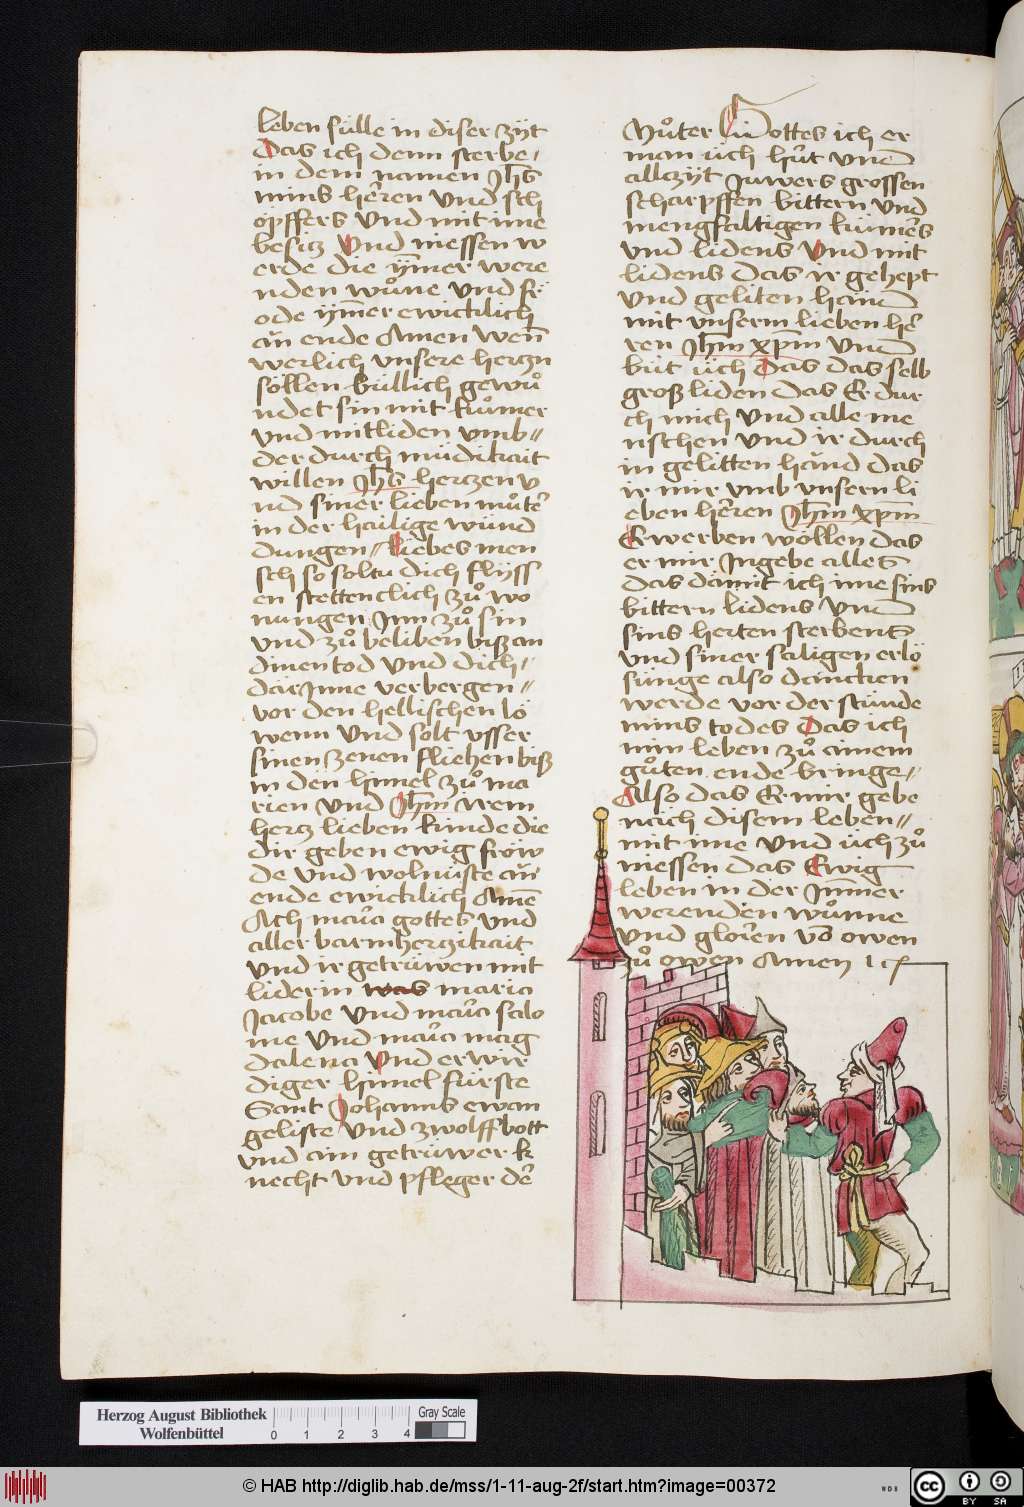 leben fülle in diser zÿt
Das ich denn sterbe
in dem namen Jhs̄
mins heren vnd sch
öpffers vnd mit ime
besicz Vnd niessen w
erde die ÿm̄er were
nden wuͦne vnd fr
öde ÿm̄er ewicklich
on ende Amen Wen̄
werlich vnsere herczn
söllen büllich gewuͦ
ndet sin mit kum̄er
vnd mitliden vmb
der durch müdikait
willen Jhs̄ herczen v
nd siner lieben muͦter
in der hailige wünd
dungen Liebes men
sch so soltu dich flÿss
en stettenclich zuͦ wo
nungen Jnn zuͦ sin
vnd zuͦ beliben bisz an
dinen tod vnd dich
dar Jnne verbergen
vor den hellischen lö
wenn vnd solt vsser
sinen zenen fliehen bisz
in den himel zuͦ ma
rien vnd Jhm̄ irem
hercz lieben kinde die
dir geben ewig fröw
de vnd wolnuste on
ende ewicklich Amē
Ach maria gottes vnd
aller barmherczikait
vnd ir getrüwen mit
liderin maria
Jacobe vnd maria salo
me vnd maria mag
dalena Vnd erwir
diger himel fürste
Sant Johanns ewan
geliste vnd zwolffbott
vnd ain getrüwer k
necht vnd pfleger der
Muͦter Gottes ich er
man üch hüt vnd
allzÿt Juwers grossen
scharpffen bittern vnd
mengfaltigen kum̄ers
vnd lidens Vnd mit
lidens das ir gehept
vnd geliten hand
mit vnserm lieben he
ren Jhm̄ xpm̄ vnd
büt üch Das das selb
grosz liden das Er dur
ch mich vnd alle me
nschen vnd ir durch
in gelitten hand das
ir mir vmb vnsern li
eben heren Jhm̄ xpm̄
Erwerben wöllen das
er mir Jngebe alles
das damit ich ime sins
bittern lidens vnd
sins herten sterbens
vnd siner saligen erlö
sunge also dancken
werde vor der stunde
mins todes Das ich
min leben zuͦ ainem
guͦten ende bringe
Also das Er mir gebe
nach disem leben
mit ime vnd üch zuͦ
niessen das Ewig
leben in der Jm̄mer
werenden wuͦnne
vnd glorien vo̅ owen
zuͦ owen Amen
Herzog August Bibliothek
Wolfenbüttel
0 1 2 3 4
Gray Scale
© HAB http://diglib.hab.de/mss/1-11-aug-2f/start.htm?image=00372
WDB
cc
BY SA